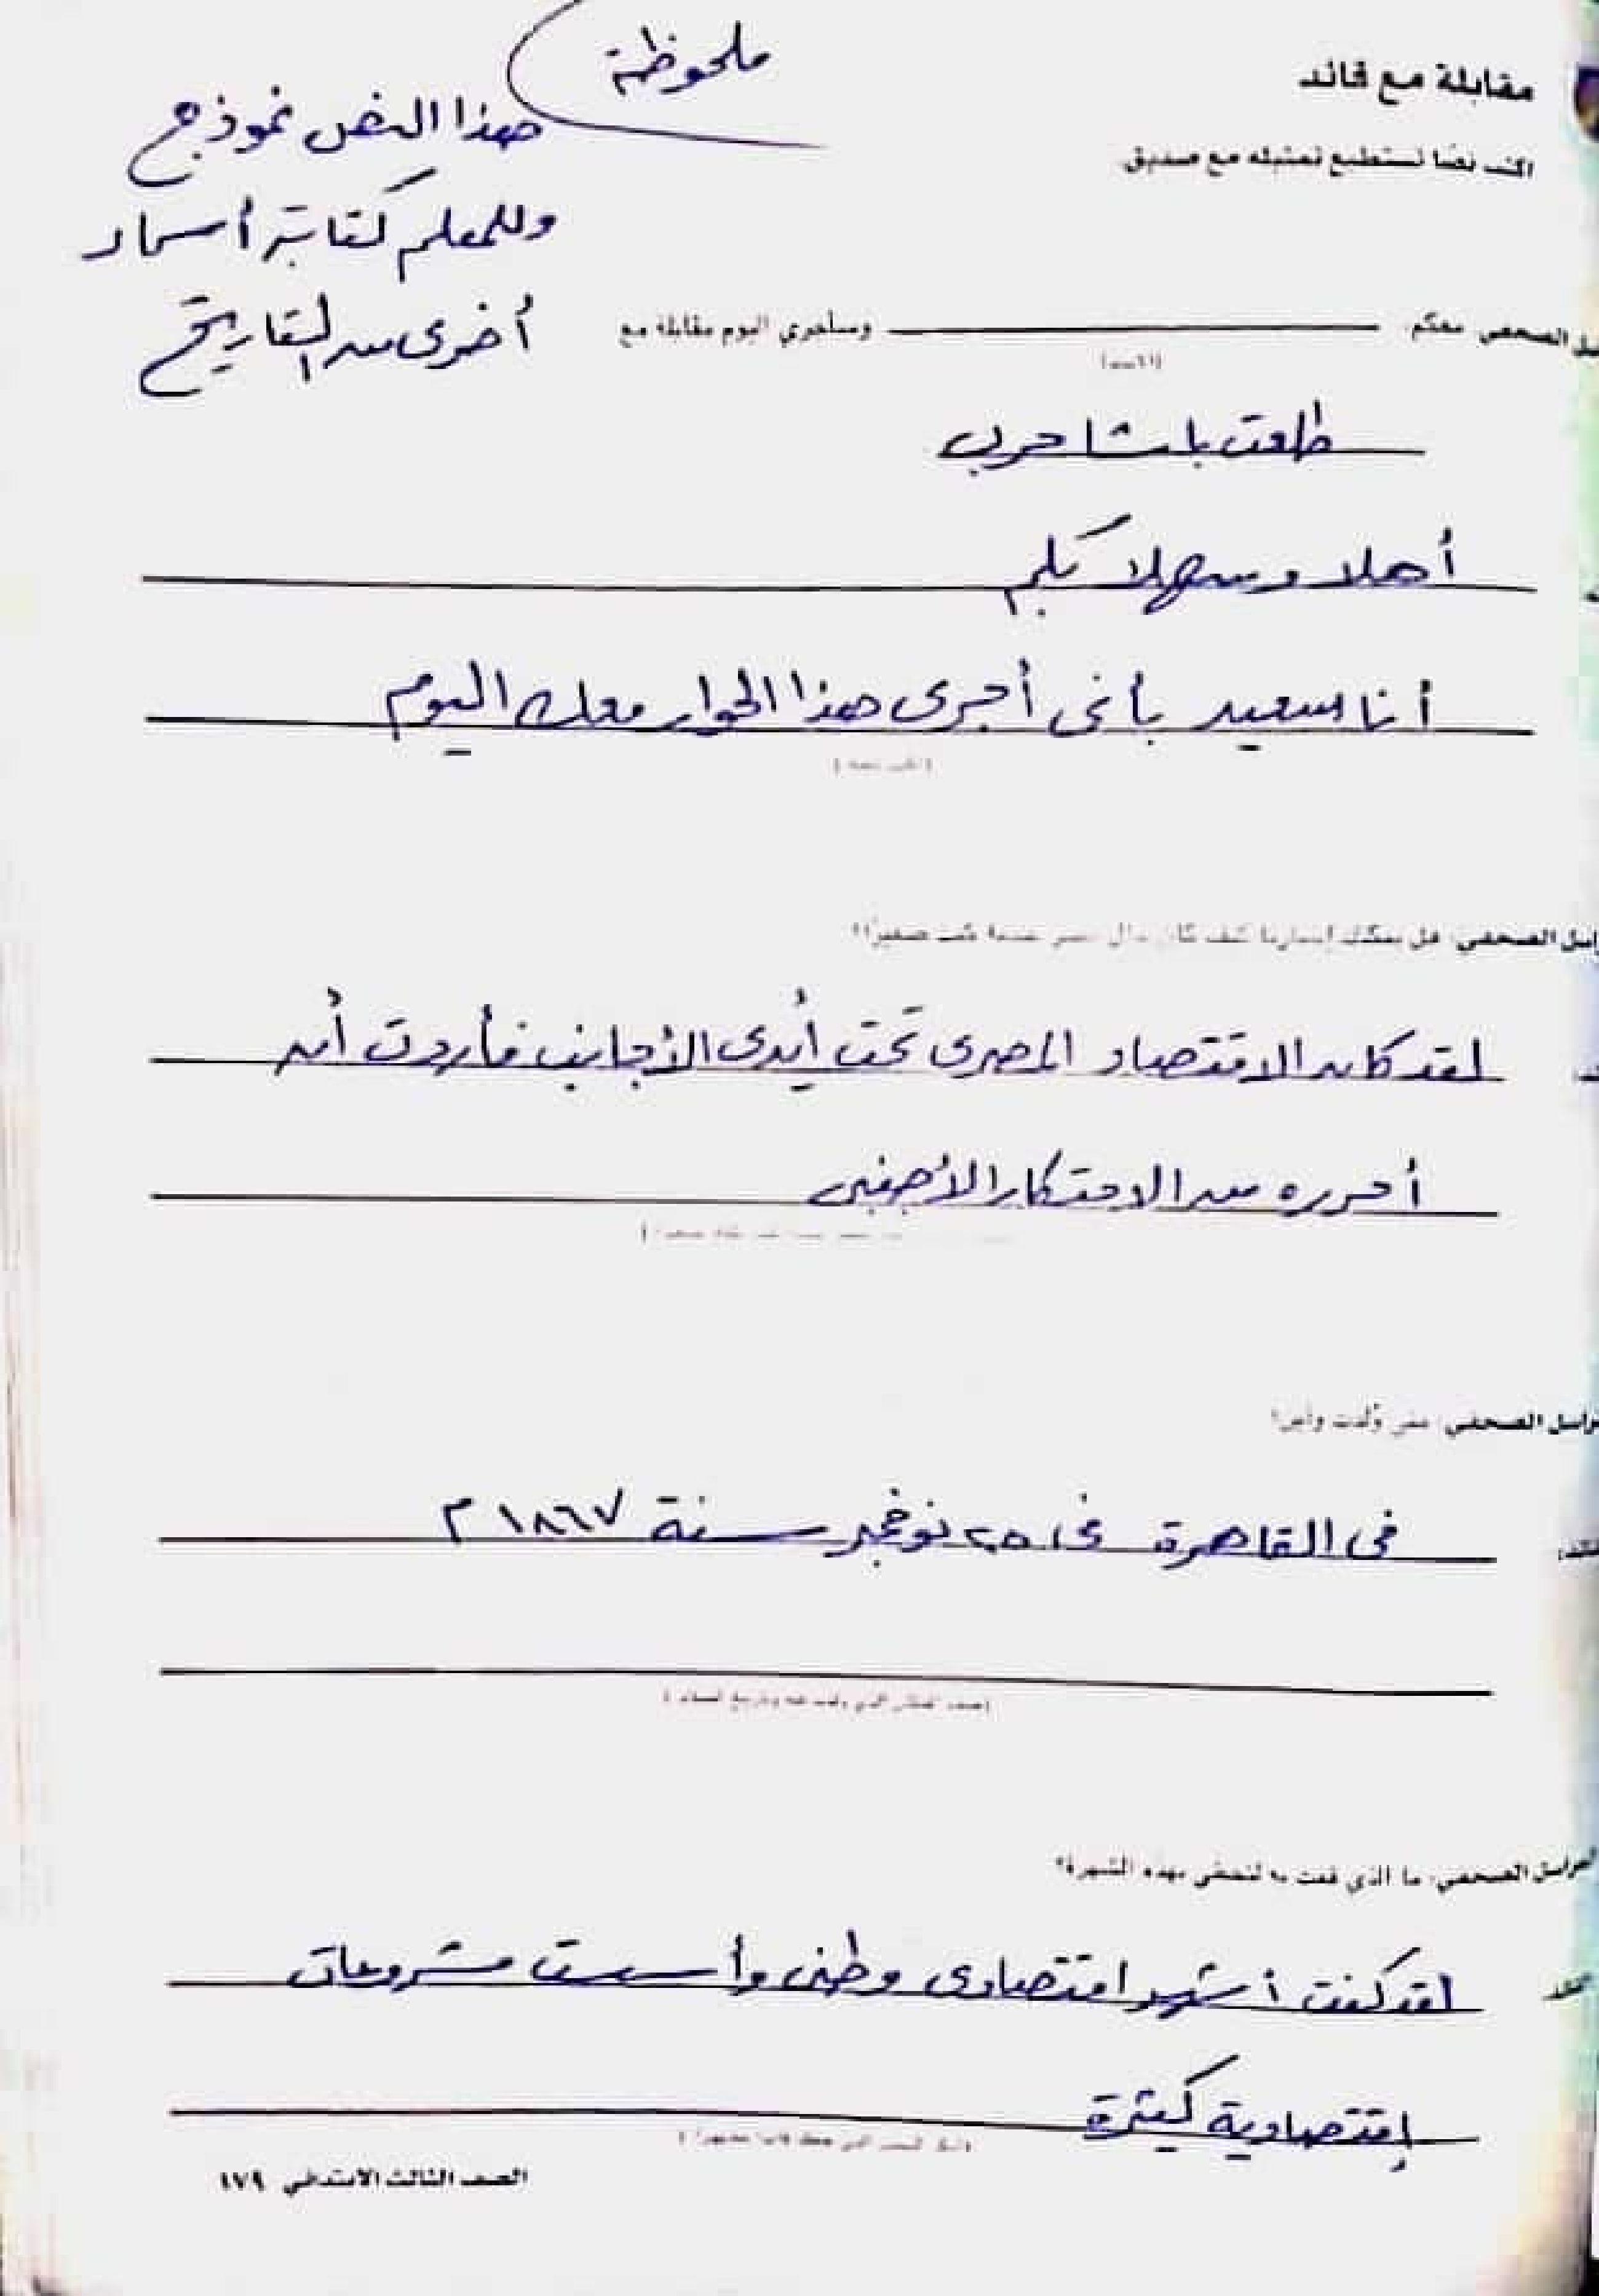 مقابلة مع قائد
اكتب نصًا تستطيع تمثيله مع صديق.
ملحوظة
هذا النص نموذج
وللمعلم كتابة أسماء
أخرى من التاريخ
الصحفي: معكم ــــــــ وسأجري اليوم مقابلة مع
(الاسم)
طلعت باشا حرب
أهلا وسهلا بكم
أنا سعيد بأنى أجرى هذا الحوار معك اليوم
الصحفي: هل يمكنك إخبارنا كيف كان حال مصر عندما كنت صغيرًا؟
لقد كان الاقتصاد المصرى تحت أيدى الأجانب فأردت أن
أحرره من الاحتكار الأجنبى
مراسل الصحفي: متى وُلدت وأين؟
فى القاهرة فى ٢٥ نوفمبر سنة ١٨٦٧ م
المراسل الصحفي: ما الذي قمت به لتحظى بهذه الشهرة؟
لقد كنت أشهر اقتصادى وطنى وأسست مشروعات
إقتصادية كثيرة
الصف الثالث الابتدائي ١٧٩